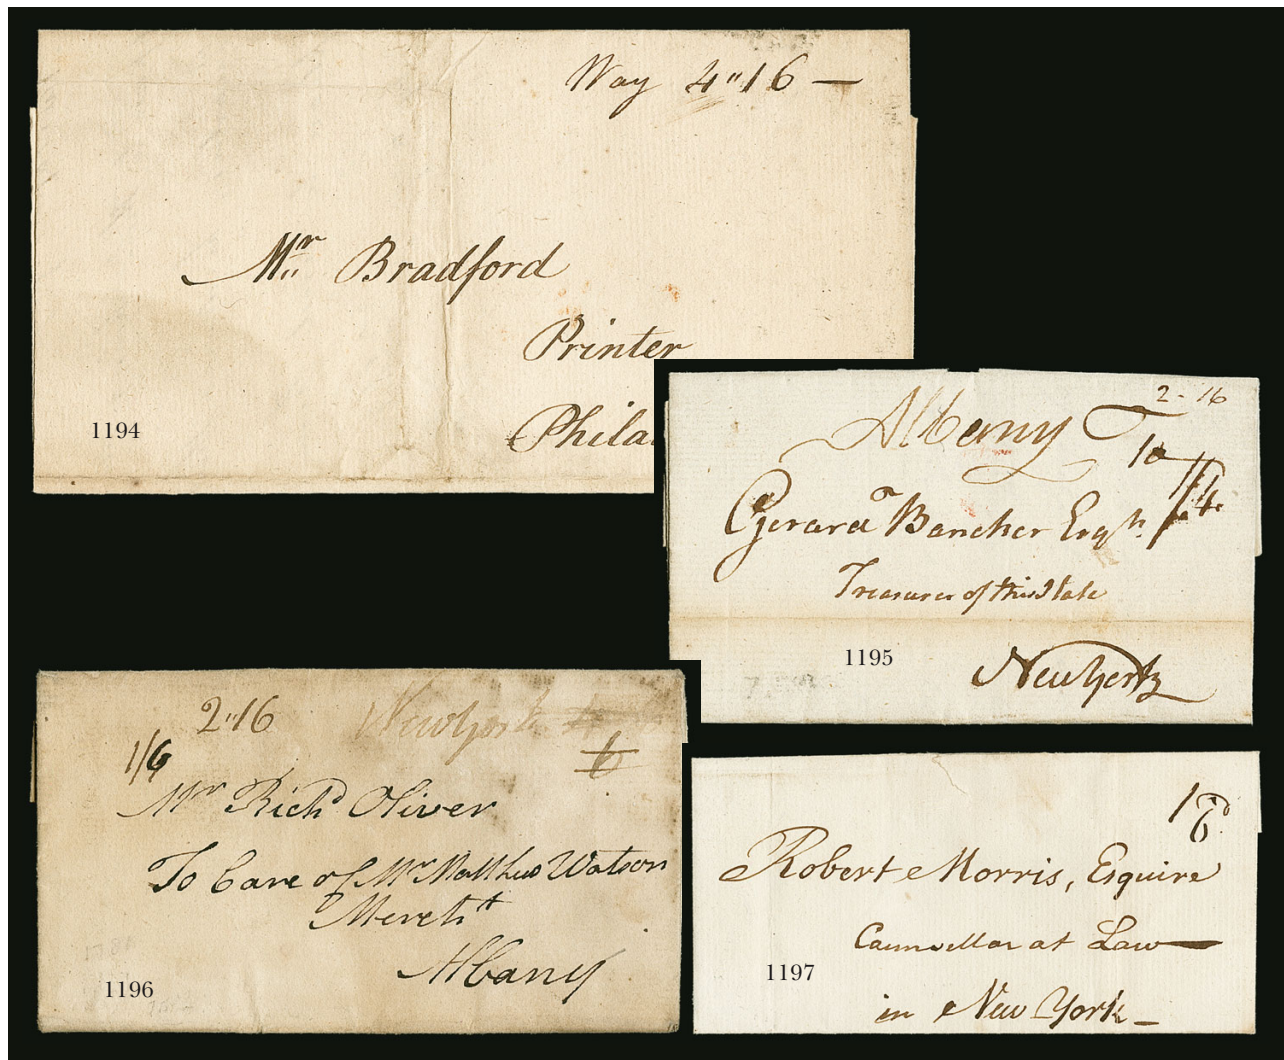 Way 4"16 —
Mr Bradford
Printer
Phila
1194
2-16
Albany
10
1/4
Gerard Bancker Esqr.
Treasurer of this State
New York
1195
2"16
New York
1/6
6
Mr Richd Oliver
To Care of Mr Matthew Watson
Mercht
Albany
1196
1
6
Robert Morris, Esquire
Counsellor at Law
in New York
1197